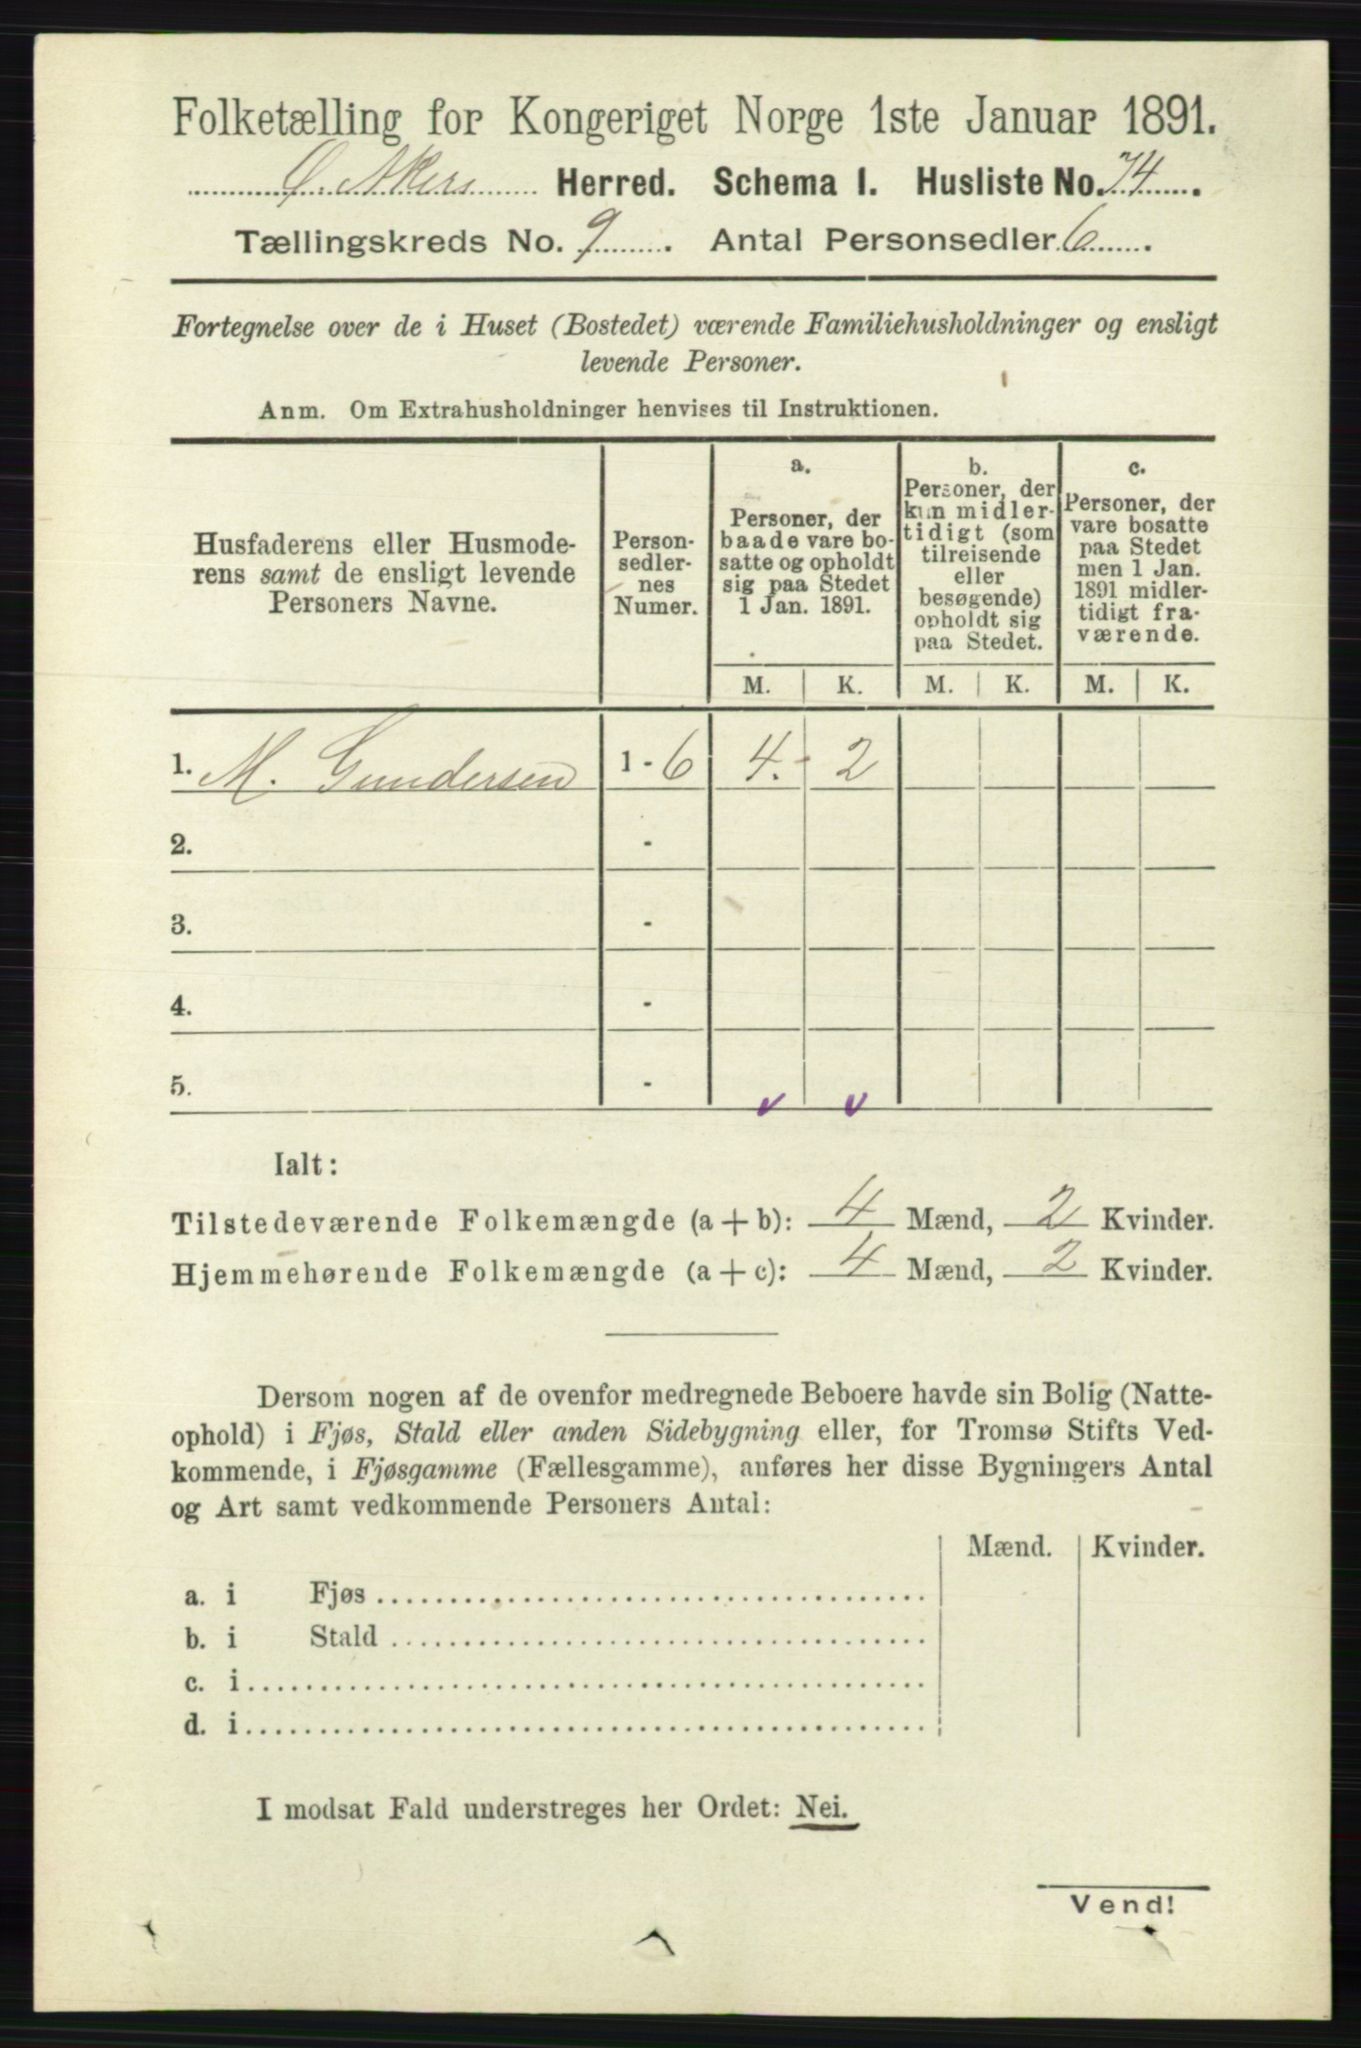 Folketælling for Kongeriget Norge 1ste Januar 1891.
Ø. Akers Herred. Schema 1. Husliste No. 74.
Tællingskreds No. 9. Antal Personsedler 6.
Fortegnelse over de i Huset (Bostedet) værende Familiehusholdninger og ensligt
levende Personer.
Anm. Om Extrahusholdninger henvises til Instruktionen.
Husfaderens eller Husmode-
rens samt de ensligt levende
Personers Navne.
Person-
sedler-
nes
Numer.
a.
Personer, der
baade vare bo-
satte og opholdt
sig paa Stedet
1 Jan. 1891.
b.
Personer, der
kun midler-
tidigt (som
tilreisende
eller
besøgende)
opholdt sig
paa Stedet.
c.
Personer, der
vare bosatte
paa Stedet
men 1 Jan.
1891 midler-
tidigt fra-
værende.
M. K. M. K. M. K.
1. M. Gundersen 1 - 6 4. - 2
2. -
3. -
4. -
5. -
Ialt:
Tilstedeværende Folkemængde (a + b): 4 Mænd, 2 Kvinder.
Hjemmehørende Folkemængde (a + c): 4 Mænd, 2 Kvinder.
Dersom nogen af de ovenfor medregnede Beboere havde sin Bolig (Natte-
ophold) i Fjøs, Stald eller anden Sidebygning eller, for Tromsø Stifts Ved-
kommende, i Fjøsgamme (Fællesgamme), anføres her disse Bygningers Antal
og Art samt vedkommende Personers Antal:
Mænd. Kvinder.
a. i Fjøs
b. i Stald
c. i
d. i
I modsat Fald understreges her Ordet: Nei.
Vend!